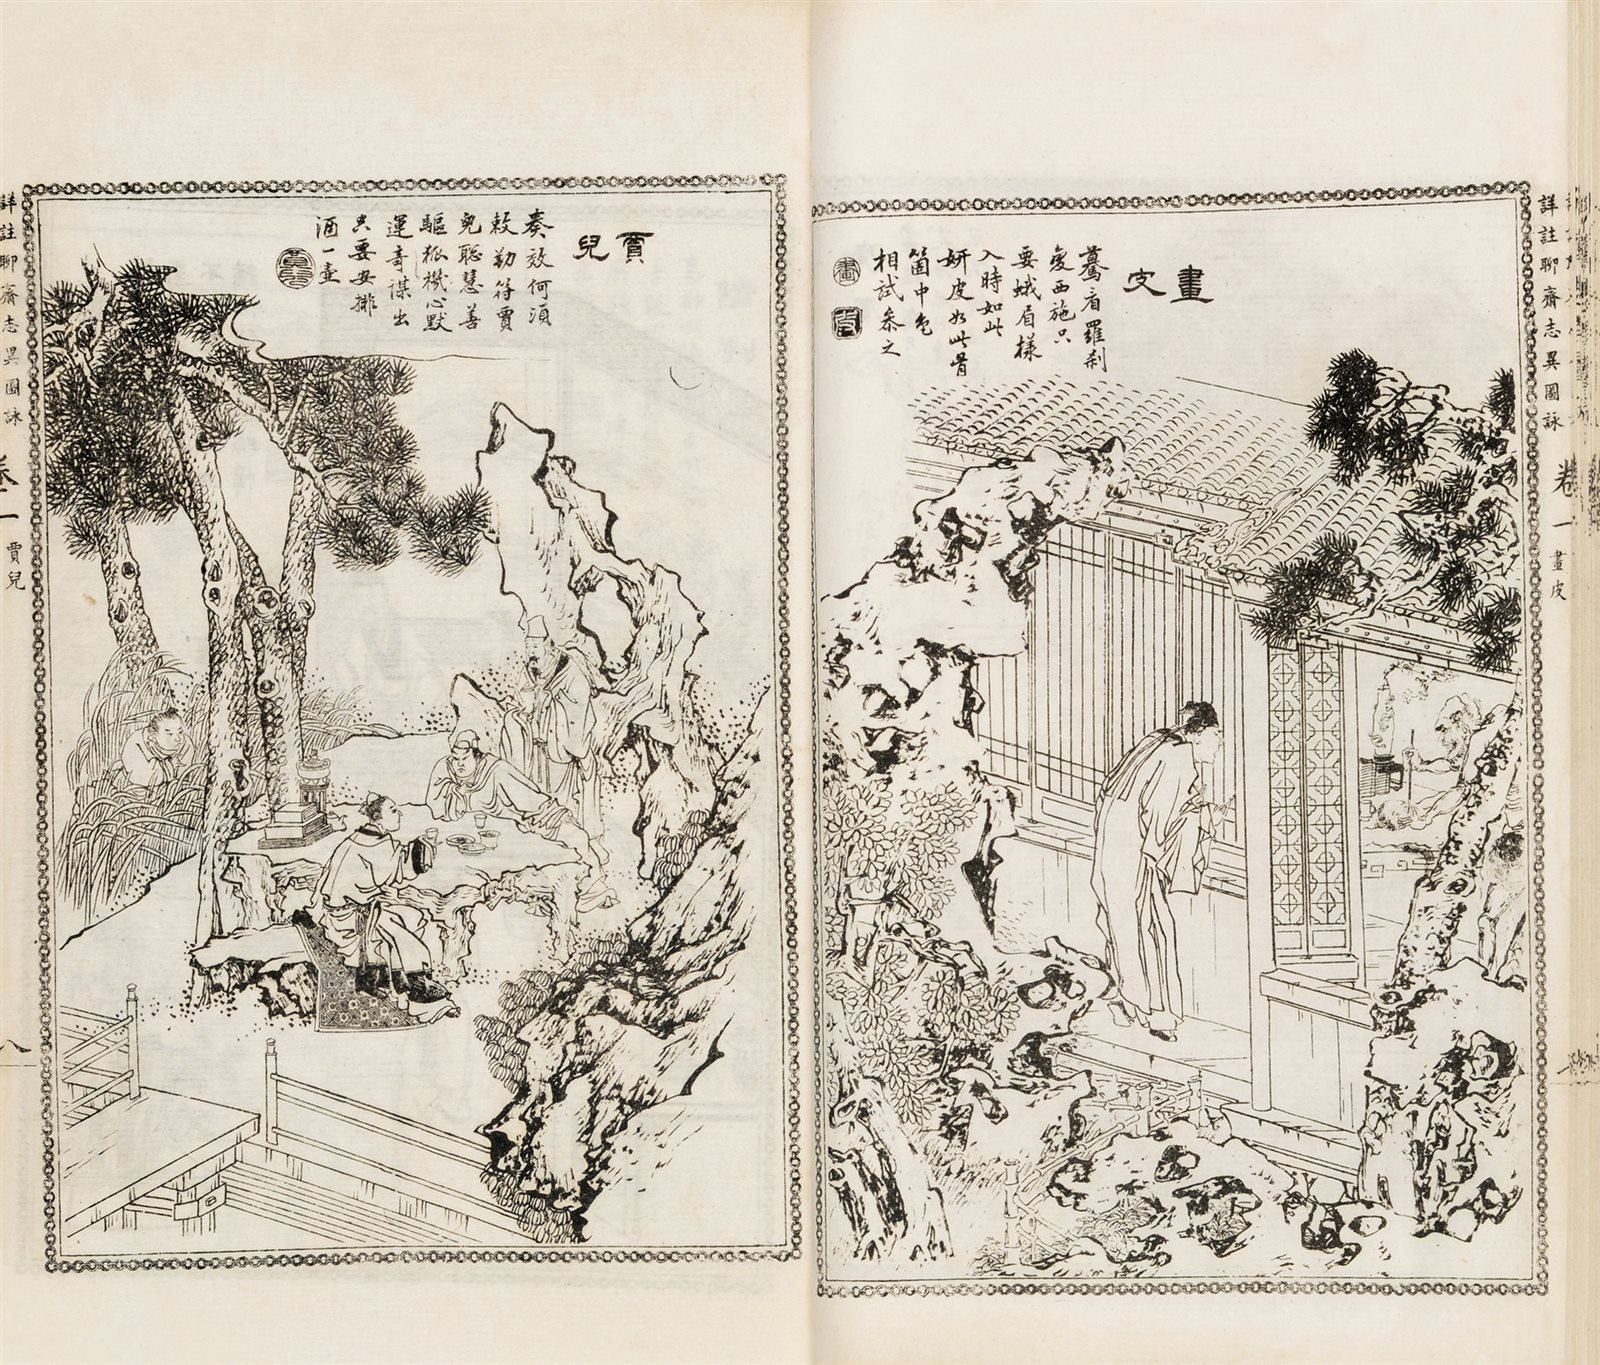 詳註聊齋志異圖詠 卷一 畫皮
畫皮
驀看羅刹
變西施只
要蛾眉樣
入時如此
妍皮如此骨
箇中色
相試參之
賈兒
奏效何須
敕勒符賈
兒聰慧善
驅狐機心默
運奇謀出
只要安排
酒一壺
詳註聊齋志異圖詠 卷一 賈兒 八